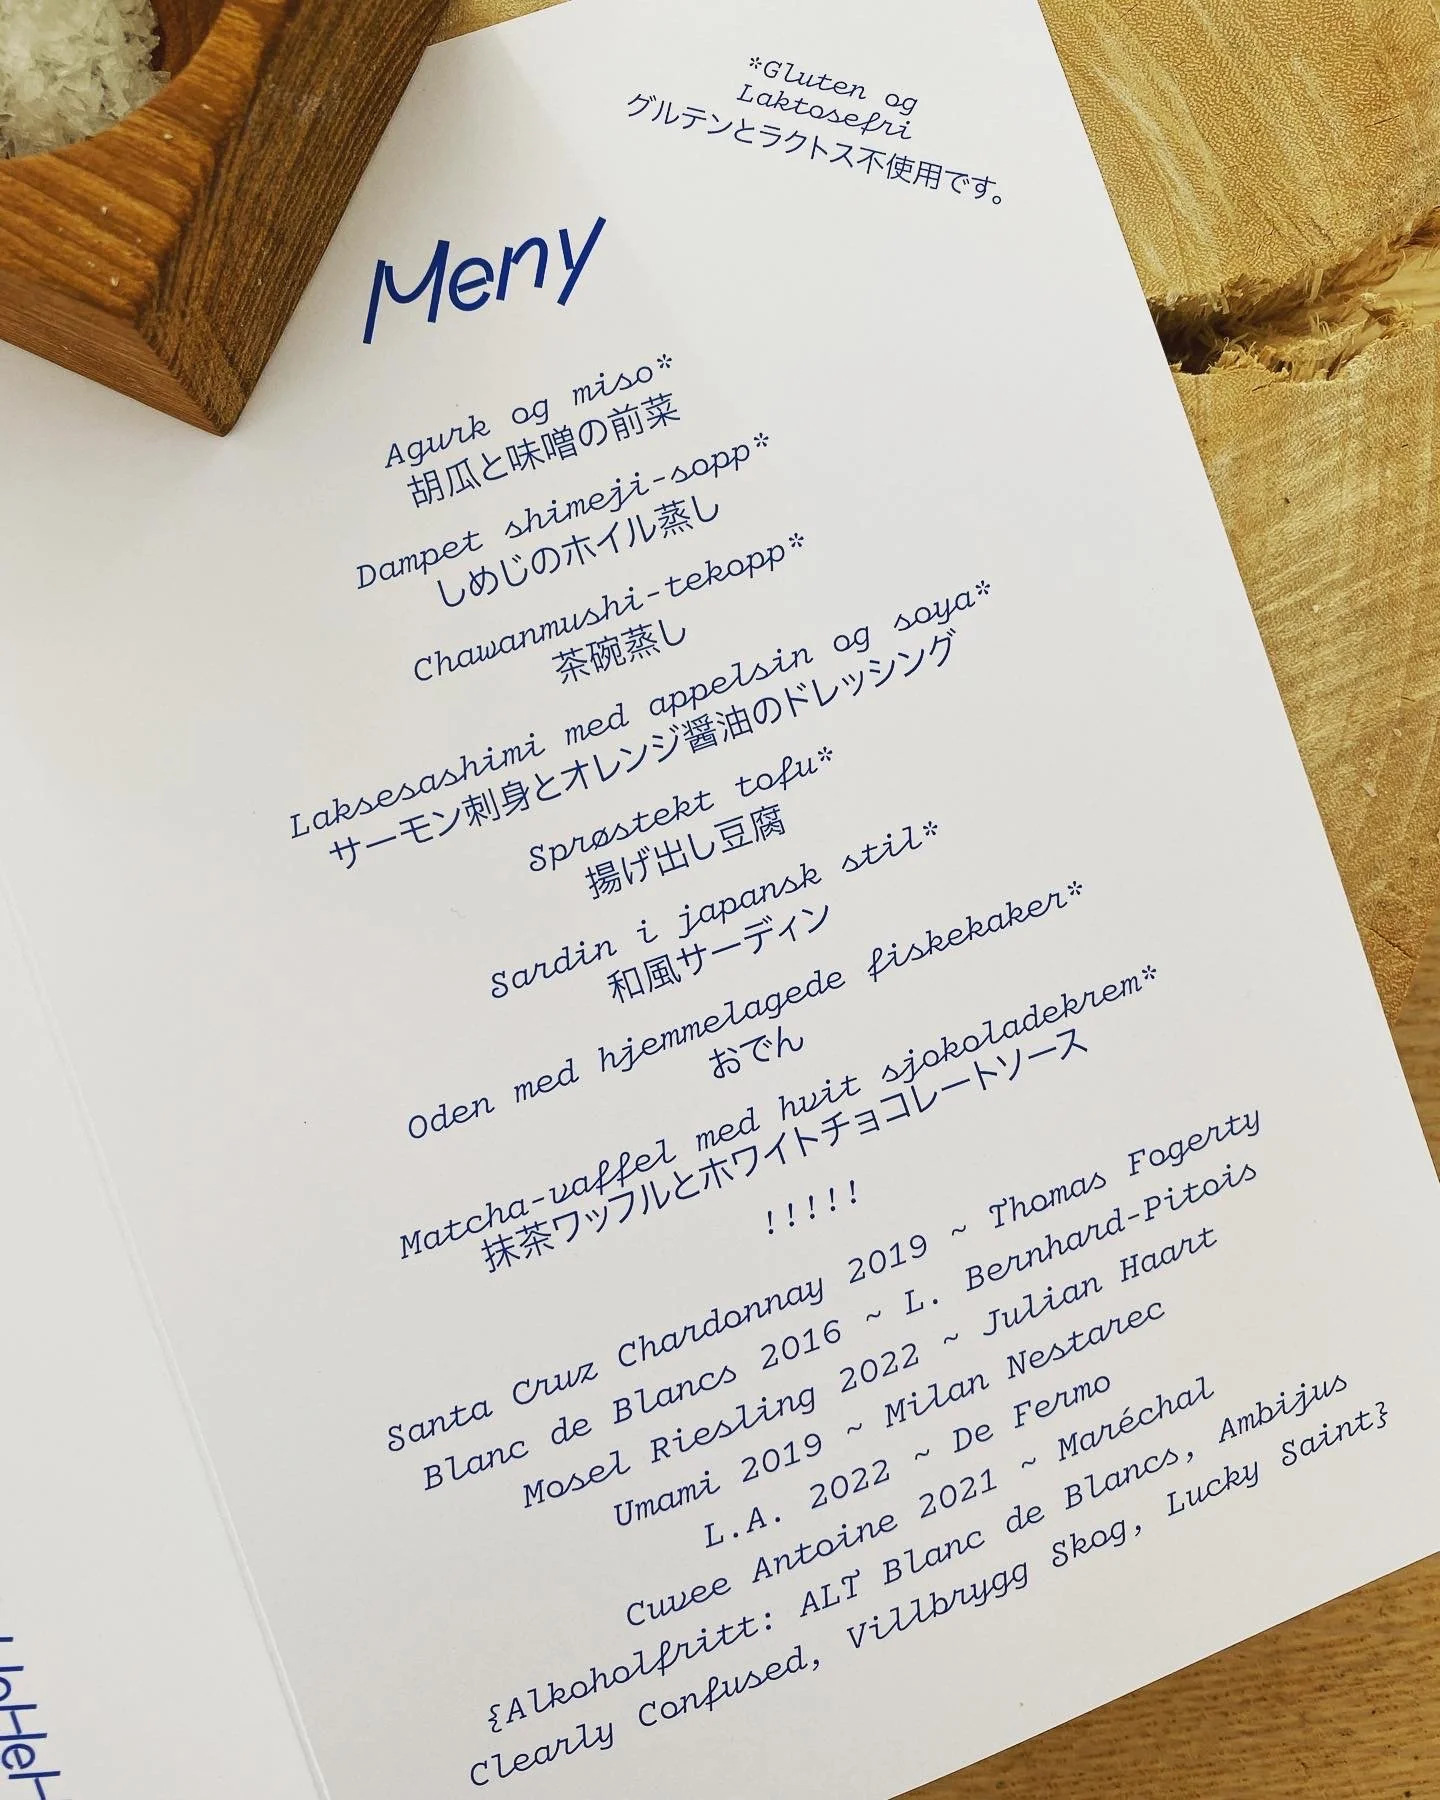 *Gluten og
Laktosefri
グルテンとラクトス不使用です。
Meny
Agurk og miso*
胡瓜と味噌の前菜
Dampet shimeji-sopp*
しめじのホイル蒸し
Chawanmushi-tekopp*
茶碗蒸し
Laksesashimi med appelsin og soya*
サーモン刺身とオレンジ醤油のドレッシング
Sprøstekt tofu*
揚げ出し豆腐
Sardin i japansk stil*
和風サーディン
Oden med hjemmelagede fiskekaker*
おでん
Matcha-vaffel med hvit sjokoladekrem*
抹茶ワッフルとホワイトチョコレートソース
!!!!!
Santa Cruz Chardonnay 2019 ~ Thomas Fogerty
Blanc de Blancs 2016 ~ L. Bernhard-Pitois
Mosel Riesling 2022 ~ Julian Haart
Umami 2019 ~ Milan Nestarec
L.A. 2022 ~ De Fermo
Cuvee Antoine 2021 ~ Maréchal
{Alkoholfritt: ALT Blanc de Blancs, Ambijus
Clearly Confused, Villbrygg Skog, Lucky Saint}